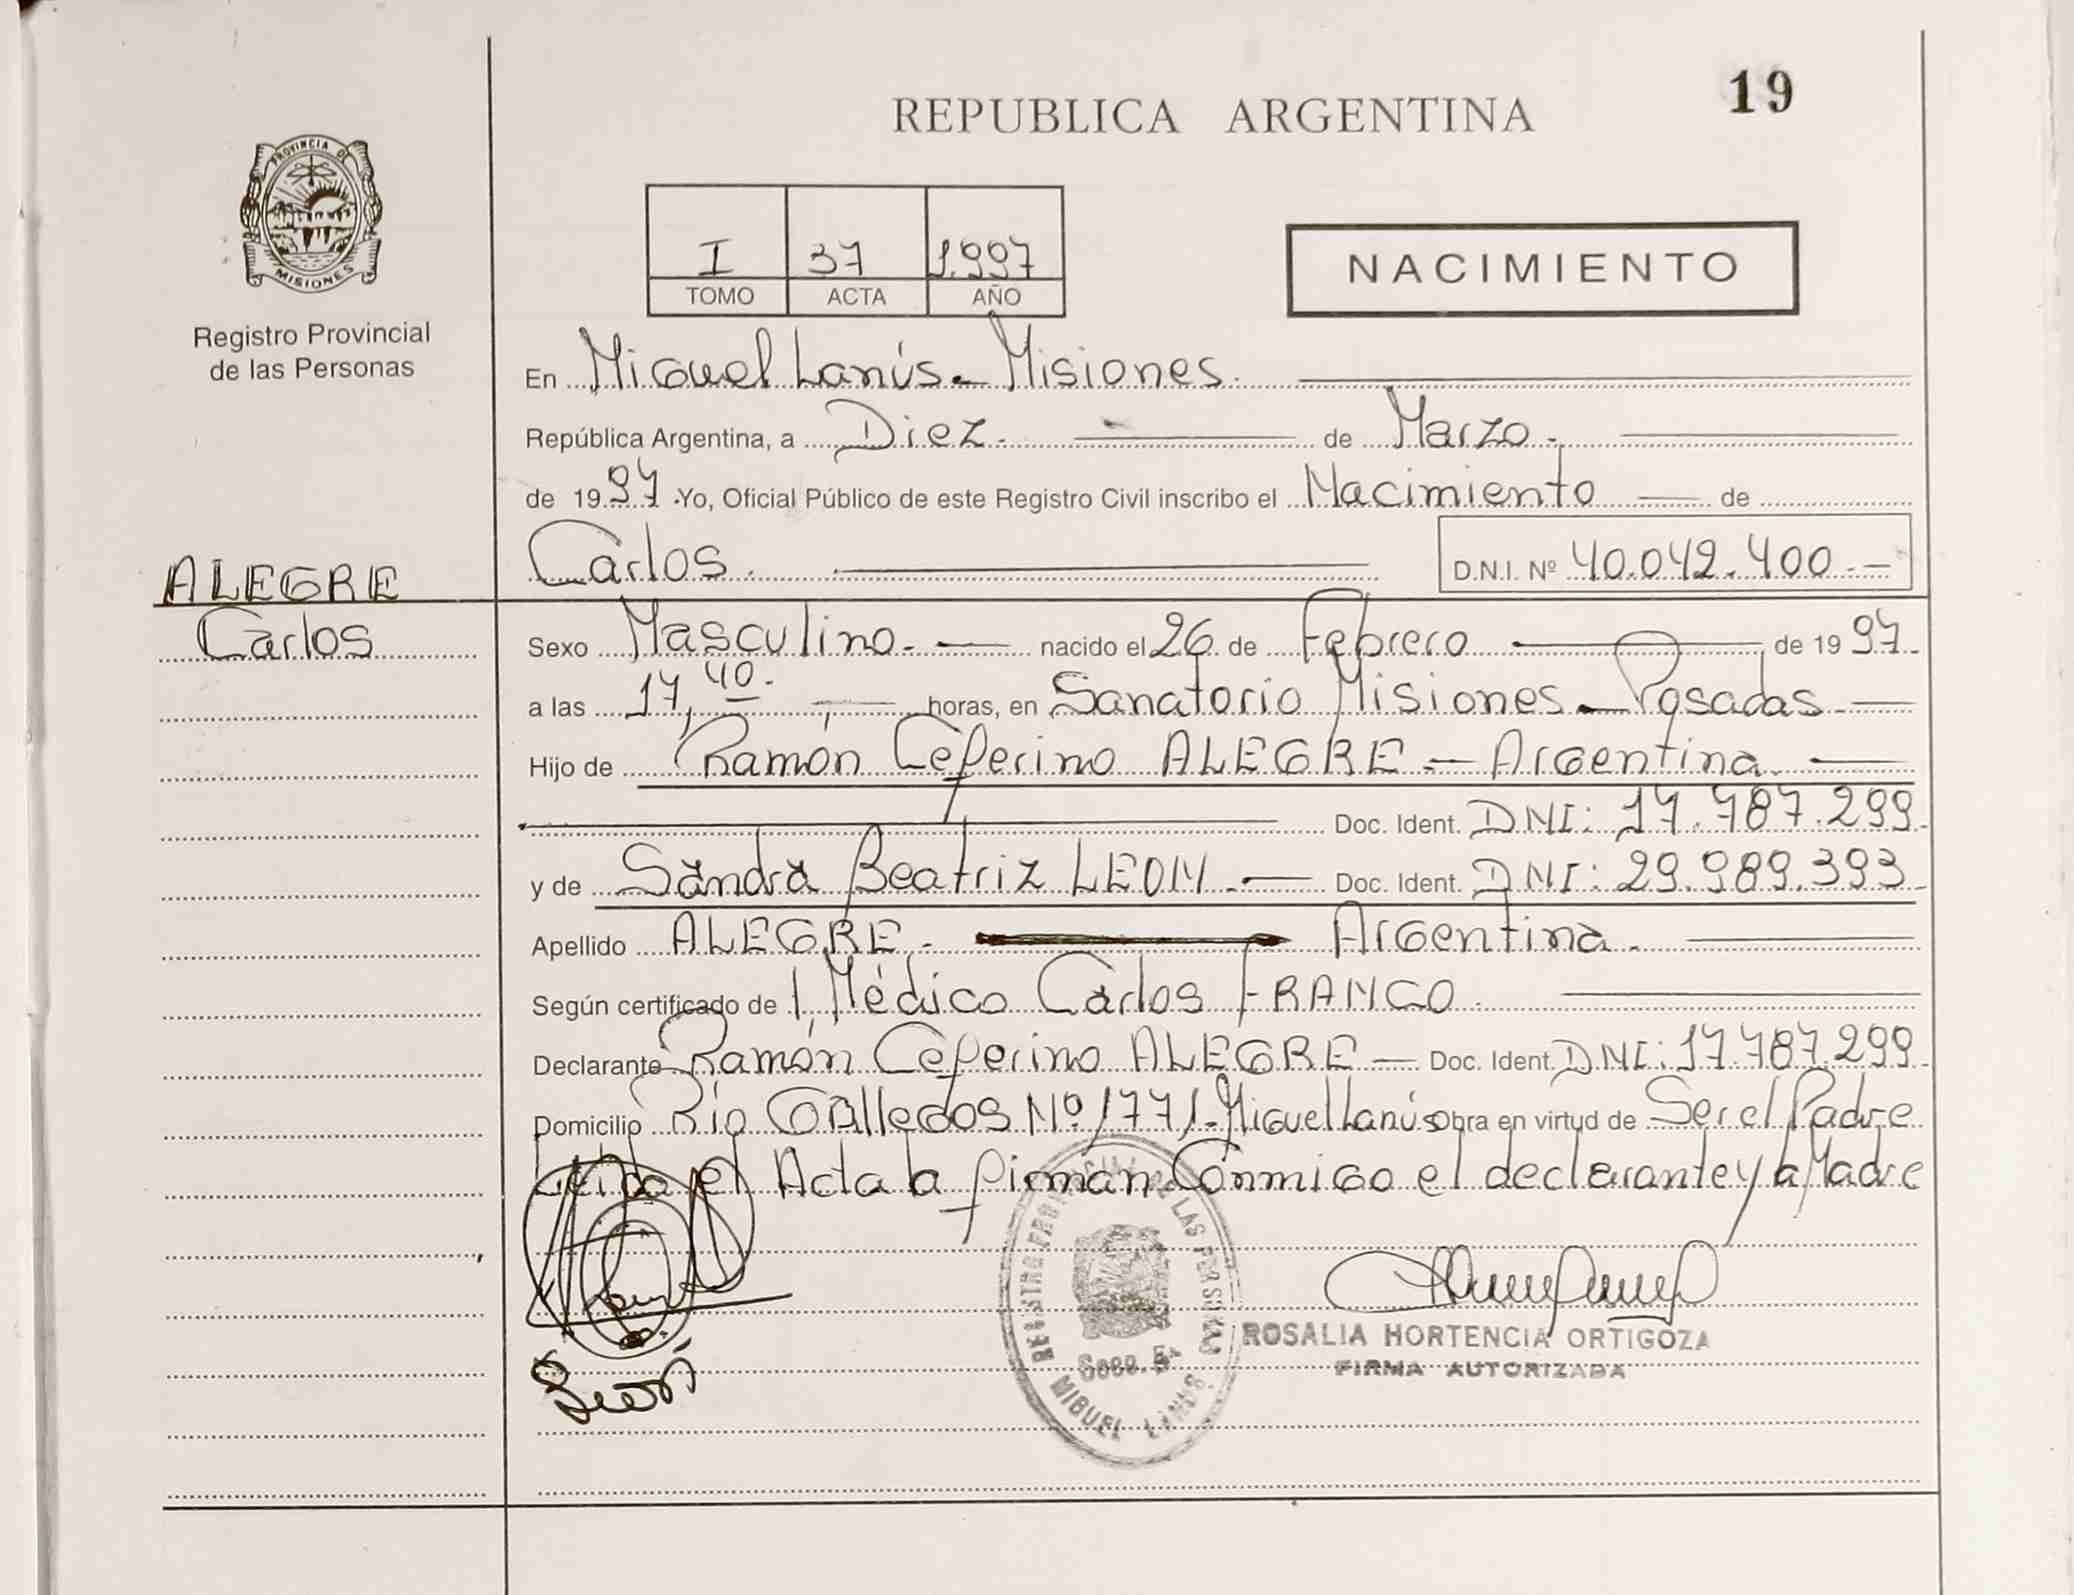 REPUBLICA ARGENTINA
19
PROVINCIA DE
MISIONES
Registro Provincial
de las Personas
I 37 1.997
TOMO ACTA AÑO
NACIMIENTO
En Miguel Lanús - Misiones.
República Argentina, a Diez. de Marzo.
de 1997. Yo, Oficial Público de este Registro Civil inscribo el Nacimiento de
Carlos. D.N.I. Nº 40.042.400.-
ALEGRE
Carlos
Sexo Masculino. nacido el 26 de Febrero de 1997.
a las 17,40. horas, en Sanatorio Misiones - Posadas
Hijo de Ramón Ceferino ALEGRE - Argentina.
Doc. Ident. DNI: 17.787.299.
y de Sandra Beatriz LEON. Doc. Ident. DNI: 29.989.393.
Apellido ALEGRE. Argentina.
Según certificado de 1, Médico Carlos FRANCO.
Declarante Ramón Ceferino ALEGRE Doc. Ident. DNI: 17.787.299.
Domicilio Río Gallegos Nº 1771 - Miguel Lanús Obra en virtud de Ser el Padre
Leída el Acta la firman Conmigo el declarante y la Madre
REGISTRO PROVINCIAL DE LAS PERSONAS
Secc. 5ª
MIGUEL LANUS
ROSALIA HORTENCIA ORTIGOZA
FIRMA AUTORIZADA